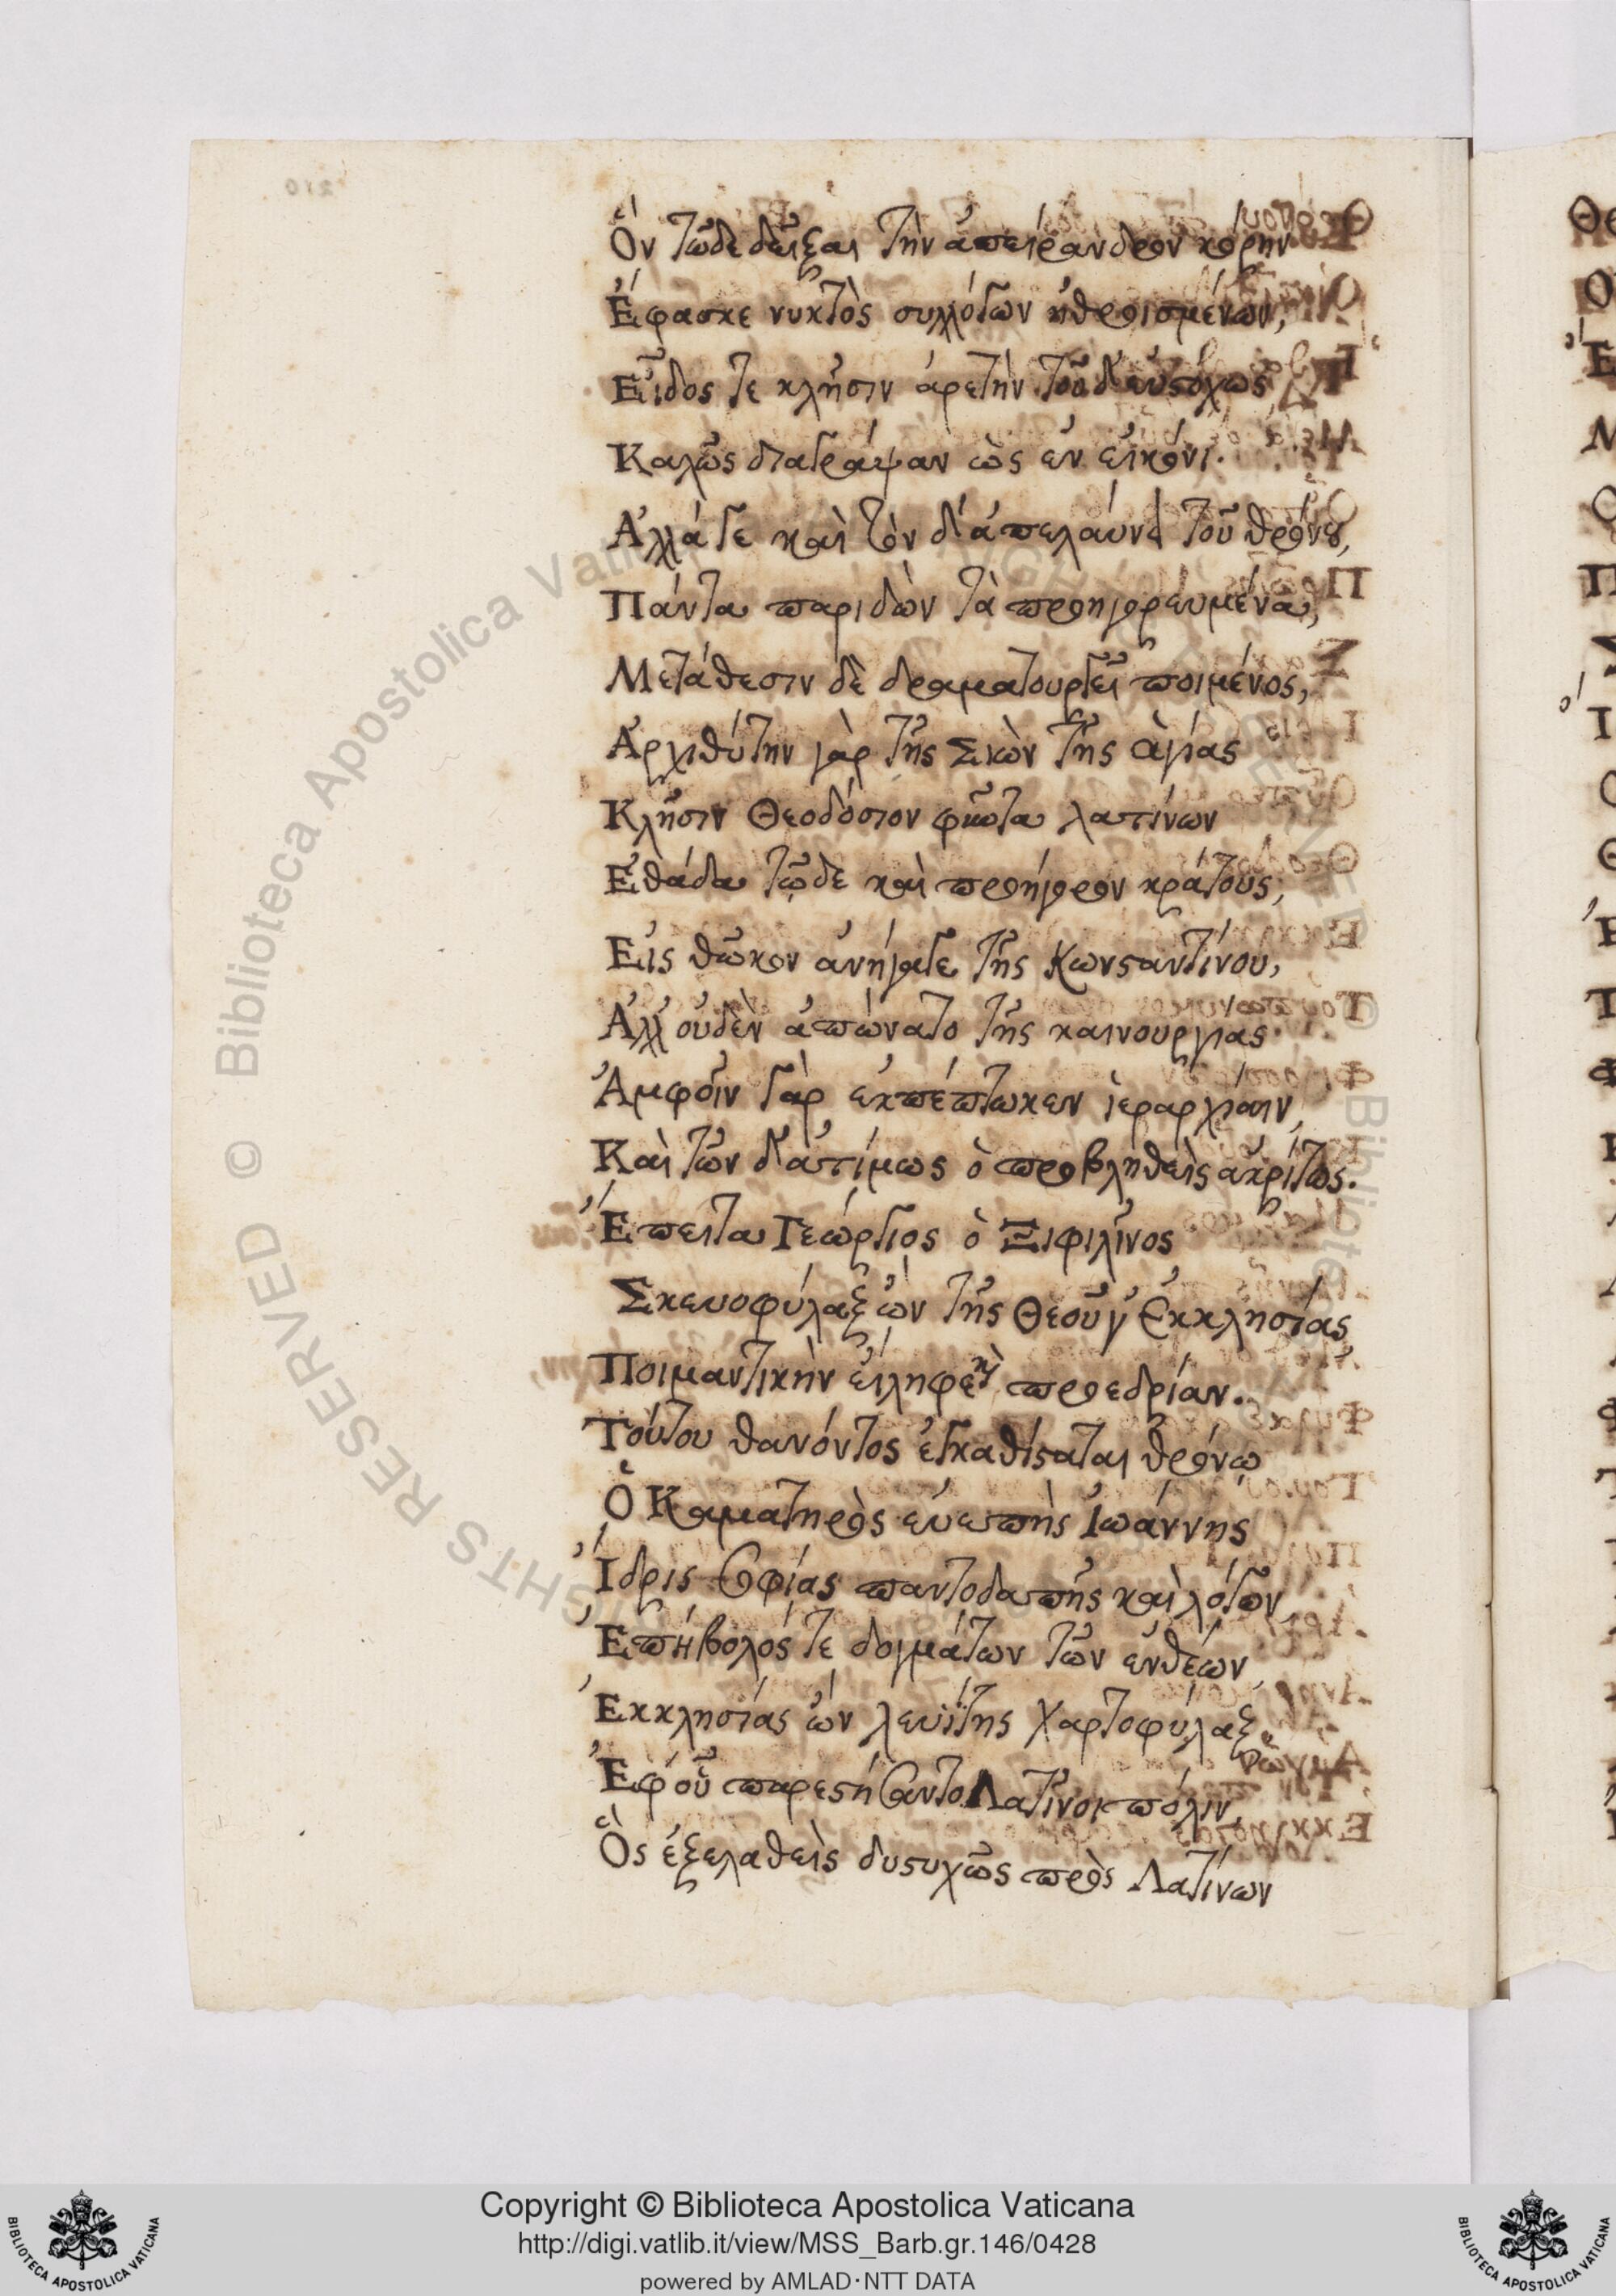 Ὃν τῶδε δεῖξαι τὴν ἀπείρανδρον κόρην
Ἔφασκε νυκτὸς συλλόγων ἠθροισμένων,
Εἶδος τε κλῆσιν ἀρετὴν τοῦδ' εὐστόχως
Καλῶς διαγράψαν ὡς ἐν εἰκόνι.
Ἀλλά γε καὶ τὸν δ' ἀπελαύνει τοῦ θρόνου,
Πάντα παριδὼν τὰ προηγορευμένα,
Μετάθεσιν δὲ δραματουργεῖ ποιμένος,
Ἀρχιθύτην γὰρ τῆς Σιὼν τῆς ἁγίας
Κλῆσιν Θεοδόσιον φῶτα λατίνων
Ἐθάδα τῷδε καὶ προήγορον κράτους,
Εἰς θῶκον ἀνήγαγε τῆς Κωνσταντίνου,
Ἀλλ' οὐδὲν ἀπώνατο τῆς καινουργίας.
Ἀμφοῖν γὰρ ἐκπέπτωκεν ἱεραρχίαιν,
Καὶ τῶν δ' ἀτίμως ὁ προβληθεὶς ἀκρίτως.
Ἔπειτα Γεώργιος ὁ Ξιφιλῖνος
Σκευοφύλαξ ὢν τῆς Θεοῦ γ' Ἐκκλησίας
Ποιμαντικὴν εἴληφε καὶ προεδρίαν.
Τούτου θανόντος ἐγκαθίσταται θρόνῳ
Ὁ Καματηρὸς εὐεπὴς Ἰωάννης
Ἴδρις σοφίας παντοδαπῆς καὶ λόγων
Ἐπήβολός τε δογμάτων τῶν ἐνθέων
Ἐκκλησίας ὢν λευΐτης Χαρτοφύλαξ.
Ἐφ' οὗ παρεστήσαντο Λατῖνοι πόλιν,
Ὃς ἐξελαθεὶς δυστυχῶς πρὸς Λατίνων
Copyright © Biblioteca Apostolica Vaticana
http://digi.vatlib.it/view/MSS_Barb.gr.146/0428
powered by AMLAD·NTT DATA